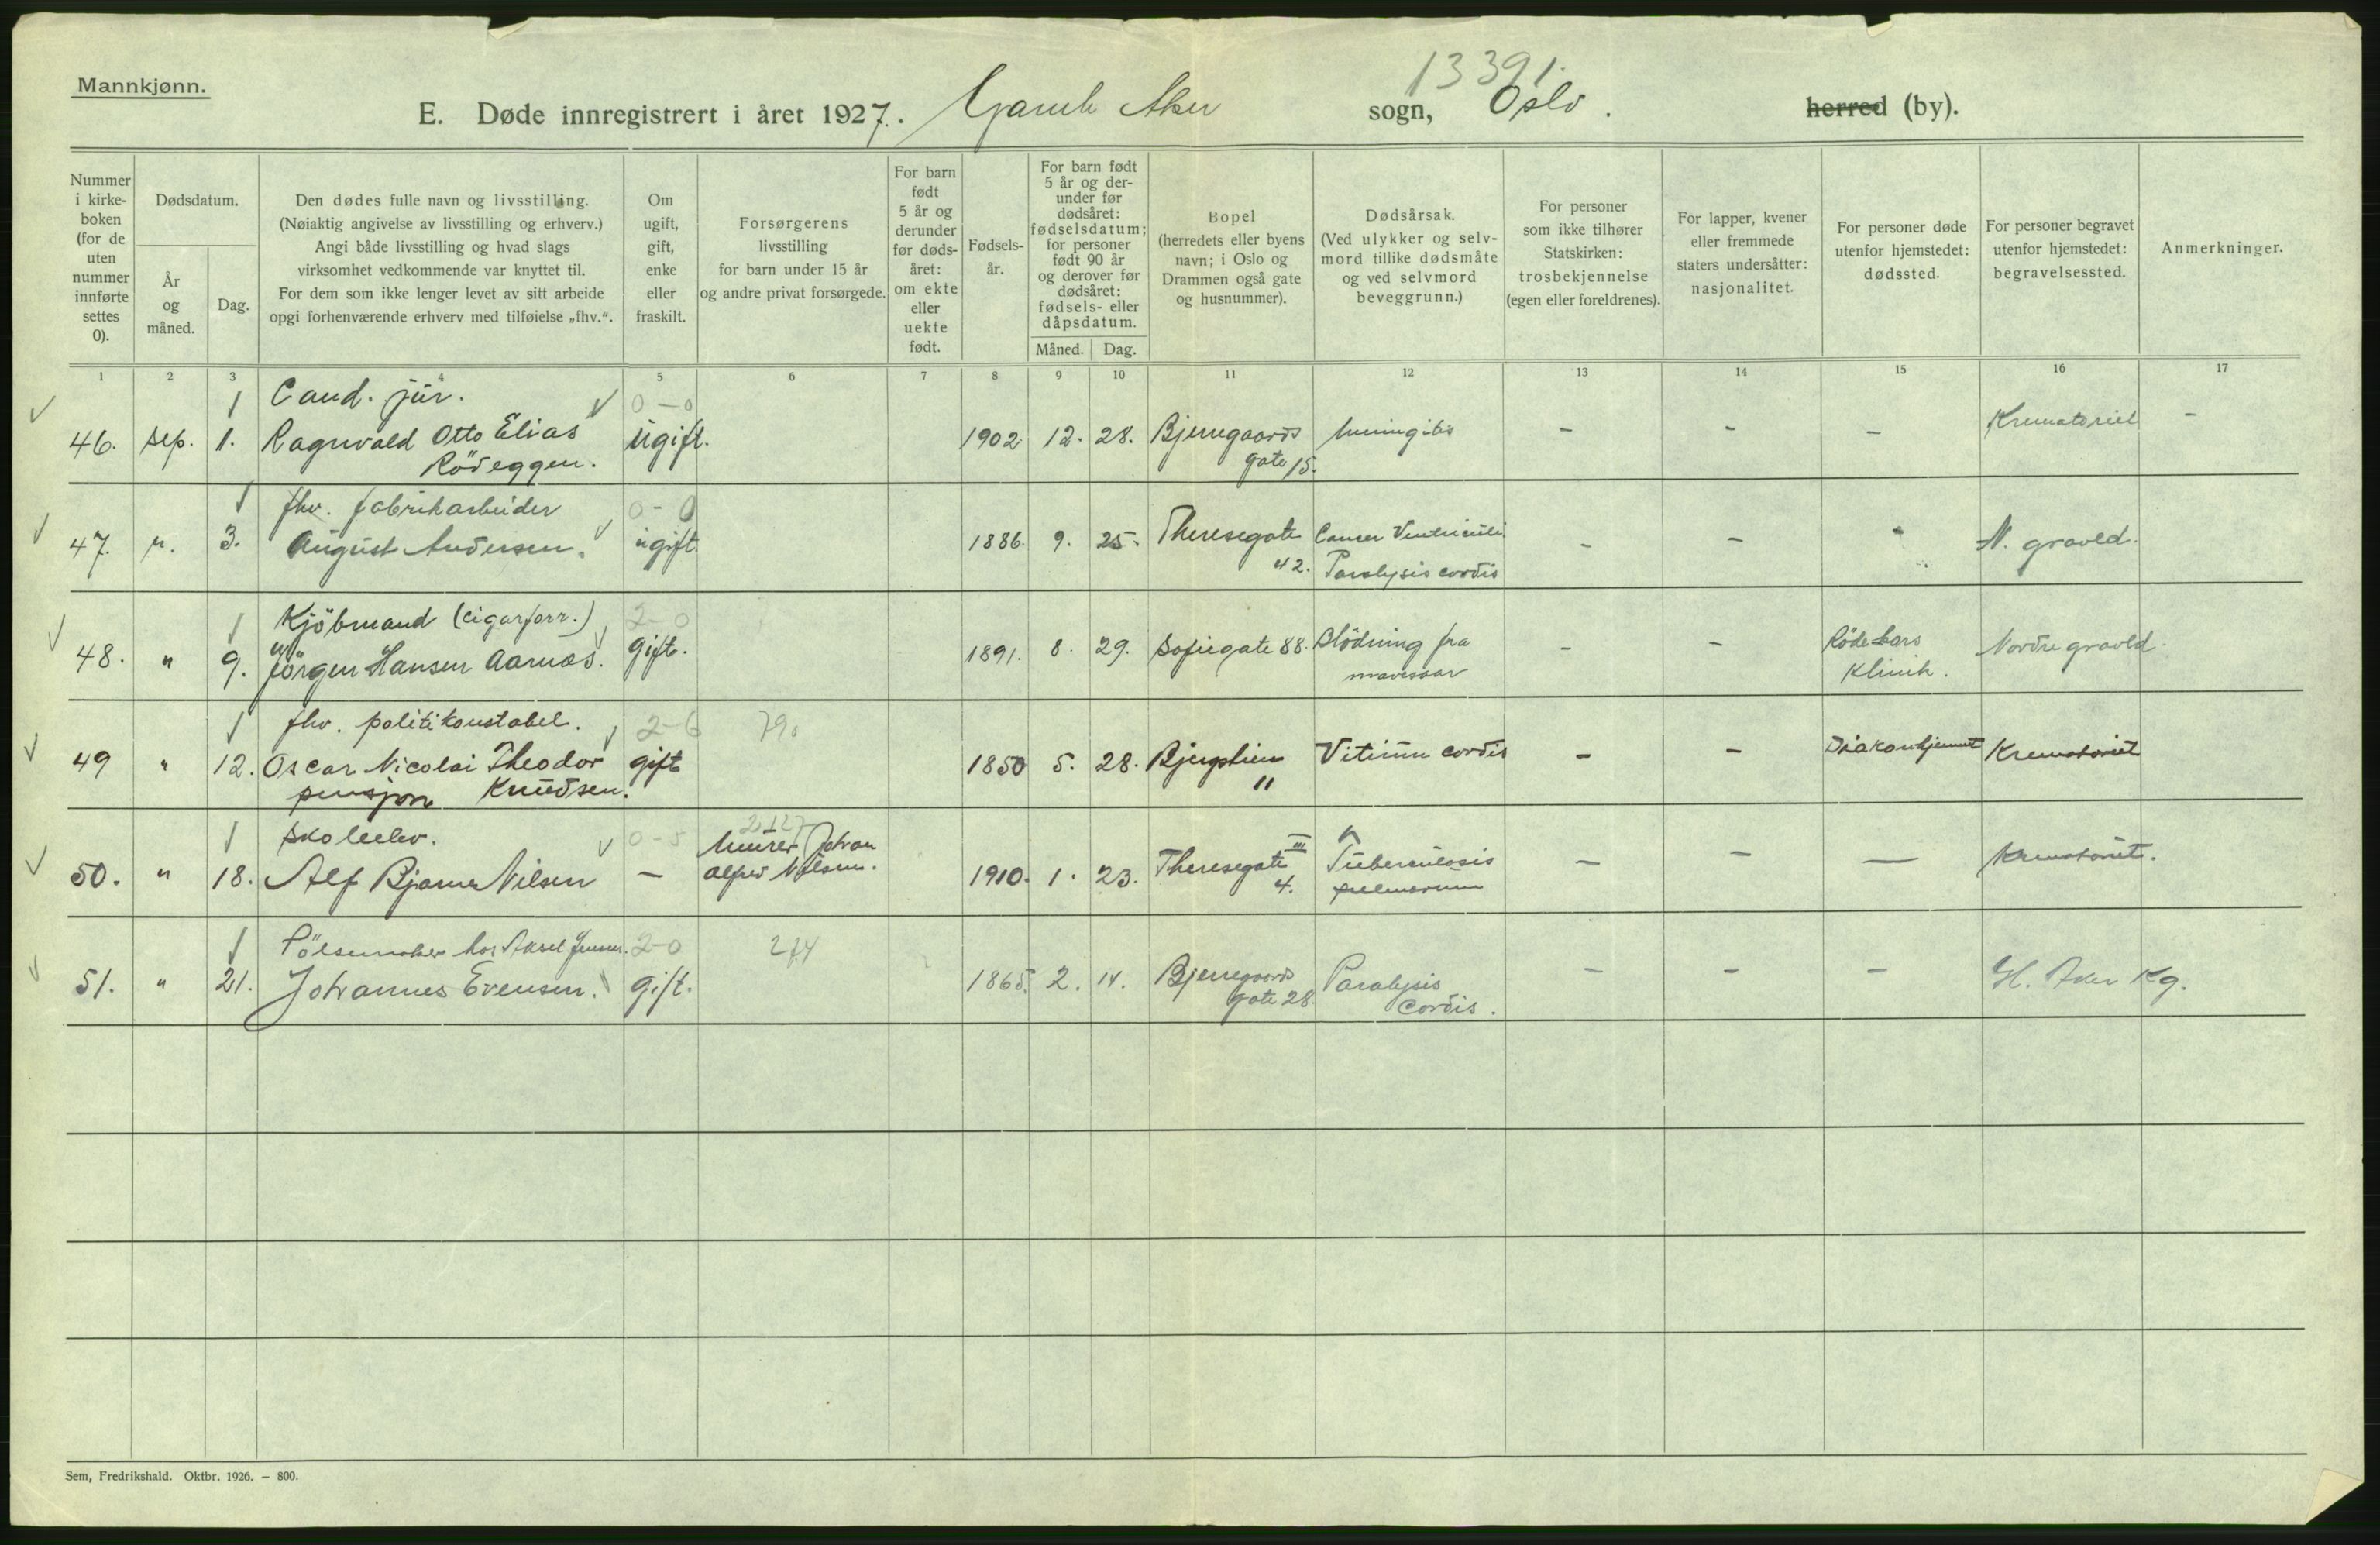 Mannkjønn.
13391.
E. Døde innregistrert i året 1927. Gamle Aker sogn, Oslo. herred (by).
Nummer i kirkeboken (for de uten nummer innførte settes 0).
Dødsdatum.
År og måned.
Dag.
Den dødes fulle navn og livsstilling.
(Nøiaktig angivelse av livsstilling og erhverv.)
Angi både livsstilling og hvad slags
virksomhet vedkommende var knyttet til.
For dem som ikke lenger levet av sitt arbeide
opgi forhenværende erhverv med tilføielse „fhv.“.
Om ugift, gift, enke eller fraskilt.
Forsørgerens
livsstilling
for barn under 15 år
og andre privat forsørgede.
For barn født 5 år og derunder før dødsåret: om ekte eller uekte født.
Fødselsår.
For barn født 5 år og derunder før dødsåret: fødselsdatum; for personer født 90 år og derover før dødsåret: fødsels- eller dåpsdatum.
Måned. Dag.
Bopel
(herredets eller byens
navn; i Oslo og
Drammen også gate
og husnummer).
Dødsårsak.
(Ved ulykker og selvmord tillike dødsmåte
og ved selvmord
beveggrunn.)
For personer
som ikke tilhører
Statskirken:
trosbekjennelse
(egen eller foreldrenes).
For lapper, kvener
eller fremmede
staters undersåtter:
nasjonalitet.
For personer døde
utenfor hjemstedet:
dødssted.
For personer begravet
utenfor hjemstedet:
begravelsessted.
Anmerkninger.
1 2 3 4 5 6 7 8 9 10 11 12 13 14 15 16 17
Cand. jur. 0-0
46. sep. 1. Ragnvald Otto Elias Rödeggen. ugift. 1902 12. 28. Bjerregaards gate 15. Meningitis - - - Krematoriet -
fhv. fabrikarbeider 0-0
47. 3. August Andersen. ugift 1886. 9. 25. Theresegate 42. Cancer Ventriculi. Paralysis cordis - - - N. gravld.
Kjöbmand (cigarforr.) 2-0
48. " 9. Jörgen Hansen Aarnæs. gift. 1891. 8. 29. Sofiegate 88. Blödning fra mavesaar - - Röde kors Klinik. Nordre gravld.
fhv. politikonstabel. 2-6 790
49 " 12. Oscar Nicolai Theodor Knudsen. pensjon gift 1850 5. 28. Bjergstien 11 Vitium cordis - - Diakonhjemmet Krematoriet
Skoleelev. 0-5
50. " 18. Alf Bjarne Nilsen - Murer Johan Alfred Nilsen. 1910. 1. 23. Theresegate 4. III Tuberculosis pulmonum - - - Krematoriet.
Pölsemaker hos Aksel Jensen. 2-0 274
51. " 21. Johannes Evensen. gift. 1865. 2. 14. Bjerregaards gate 28. Paralysis Cordis. - - - Gl. Aker Kg.
Sem, Fredrikshald. Oktbr. 1926. – 800.